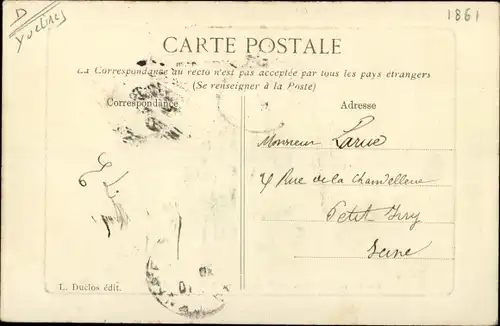 D
Yvelines
1861
CARTE POSTALE
La Correspondance au recto n'est pas acceptée par tous les pays étrangers
(Se renseigner à la Poste)
Correspondance
Adresse
Monsieur Larue
Rue de la Chandelleue
Petit Ivry
Seine
L. Duclos édit.